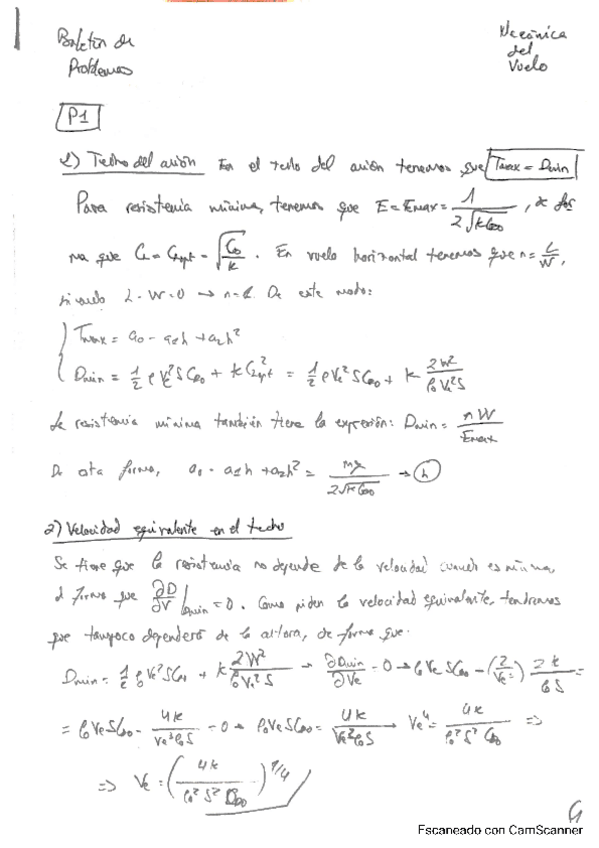 Boletín de Problemas
Mecánica del Vuelo
P1
1) Techo del avión En el techo del avión tenemos que Tmax = Dmin
Para resistencia mínima, tenemos que E = Emax = 1/(2√(k CD0)), de for
ma que CL = CLopt = √(CD0/k). En vuelo horizontal tenemos que n = L/W,
siendo L - W = 0 → n = 1. De este modo:
Tmax = a0 - a1h + a2h²
Dmin = 1/2 ρ Ve² S CD0 + k CLopt² = 1/2 ρ Ve² S CD0 + k 2W²/(ρ0 Ve² S)
La resistencia mínima también tiene la expresión: Dmin = nW/Emax
De esta forma, a0 - a1h + a2h² = mg/(2√(k CD0)) → h
2) Velocidad equivalente en el techo
Se tiene que la resistencia no depende de la velocidad cuando es mínima,
d forma que ∂D/∂V |Dmin = 0. Como piden la velocidad equivalente, tendremos
que tampoco dependerá de la altura, de forma que:
Dmin = 1/2 ρ0 Ve² S CD0 + k 2W²/(ρ0 Ve² S) → ∂Dmin/∂Ve = 0 → ρ0 Ve S CD0 - (2/Ve³) 2k/(ρ0 S) =
= ρ0 Ve S CD0 - 4k/(Ve³ ρ0 S) = 0 → ρ0 Ve S CD0 = 4k/(Ve³ ρ0 S) → Ve⁴ = 4k/(ρ0² S² CD0) ⇒
⇒ Ve = (4k/(ρ0² S² CD0))^1/4
Escaneado con CamScanner